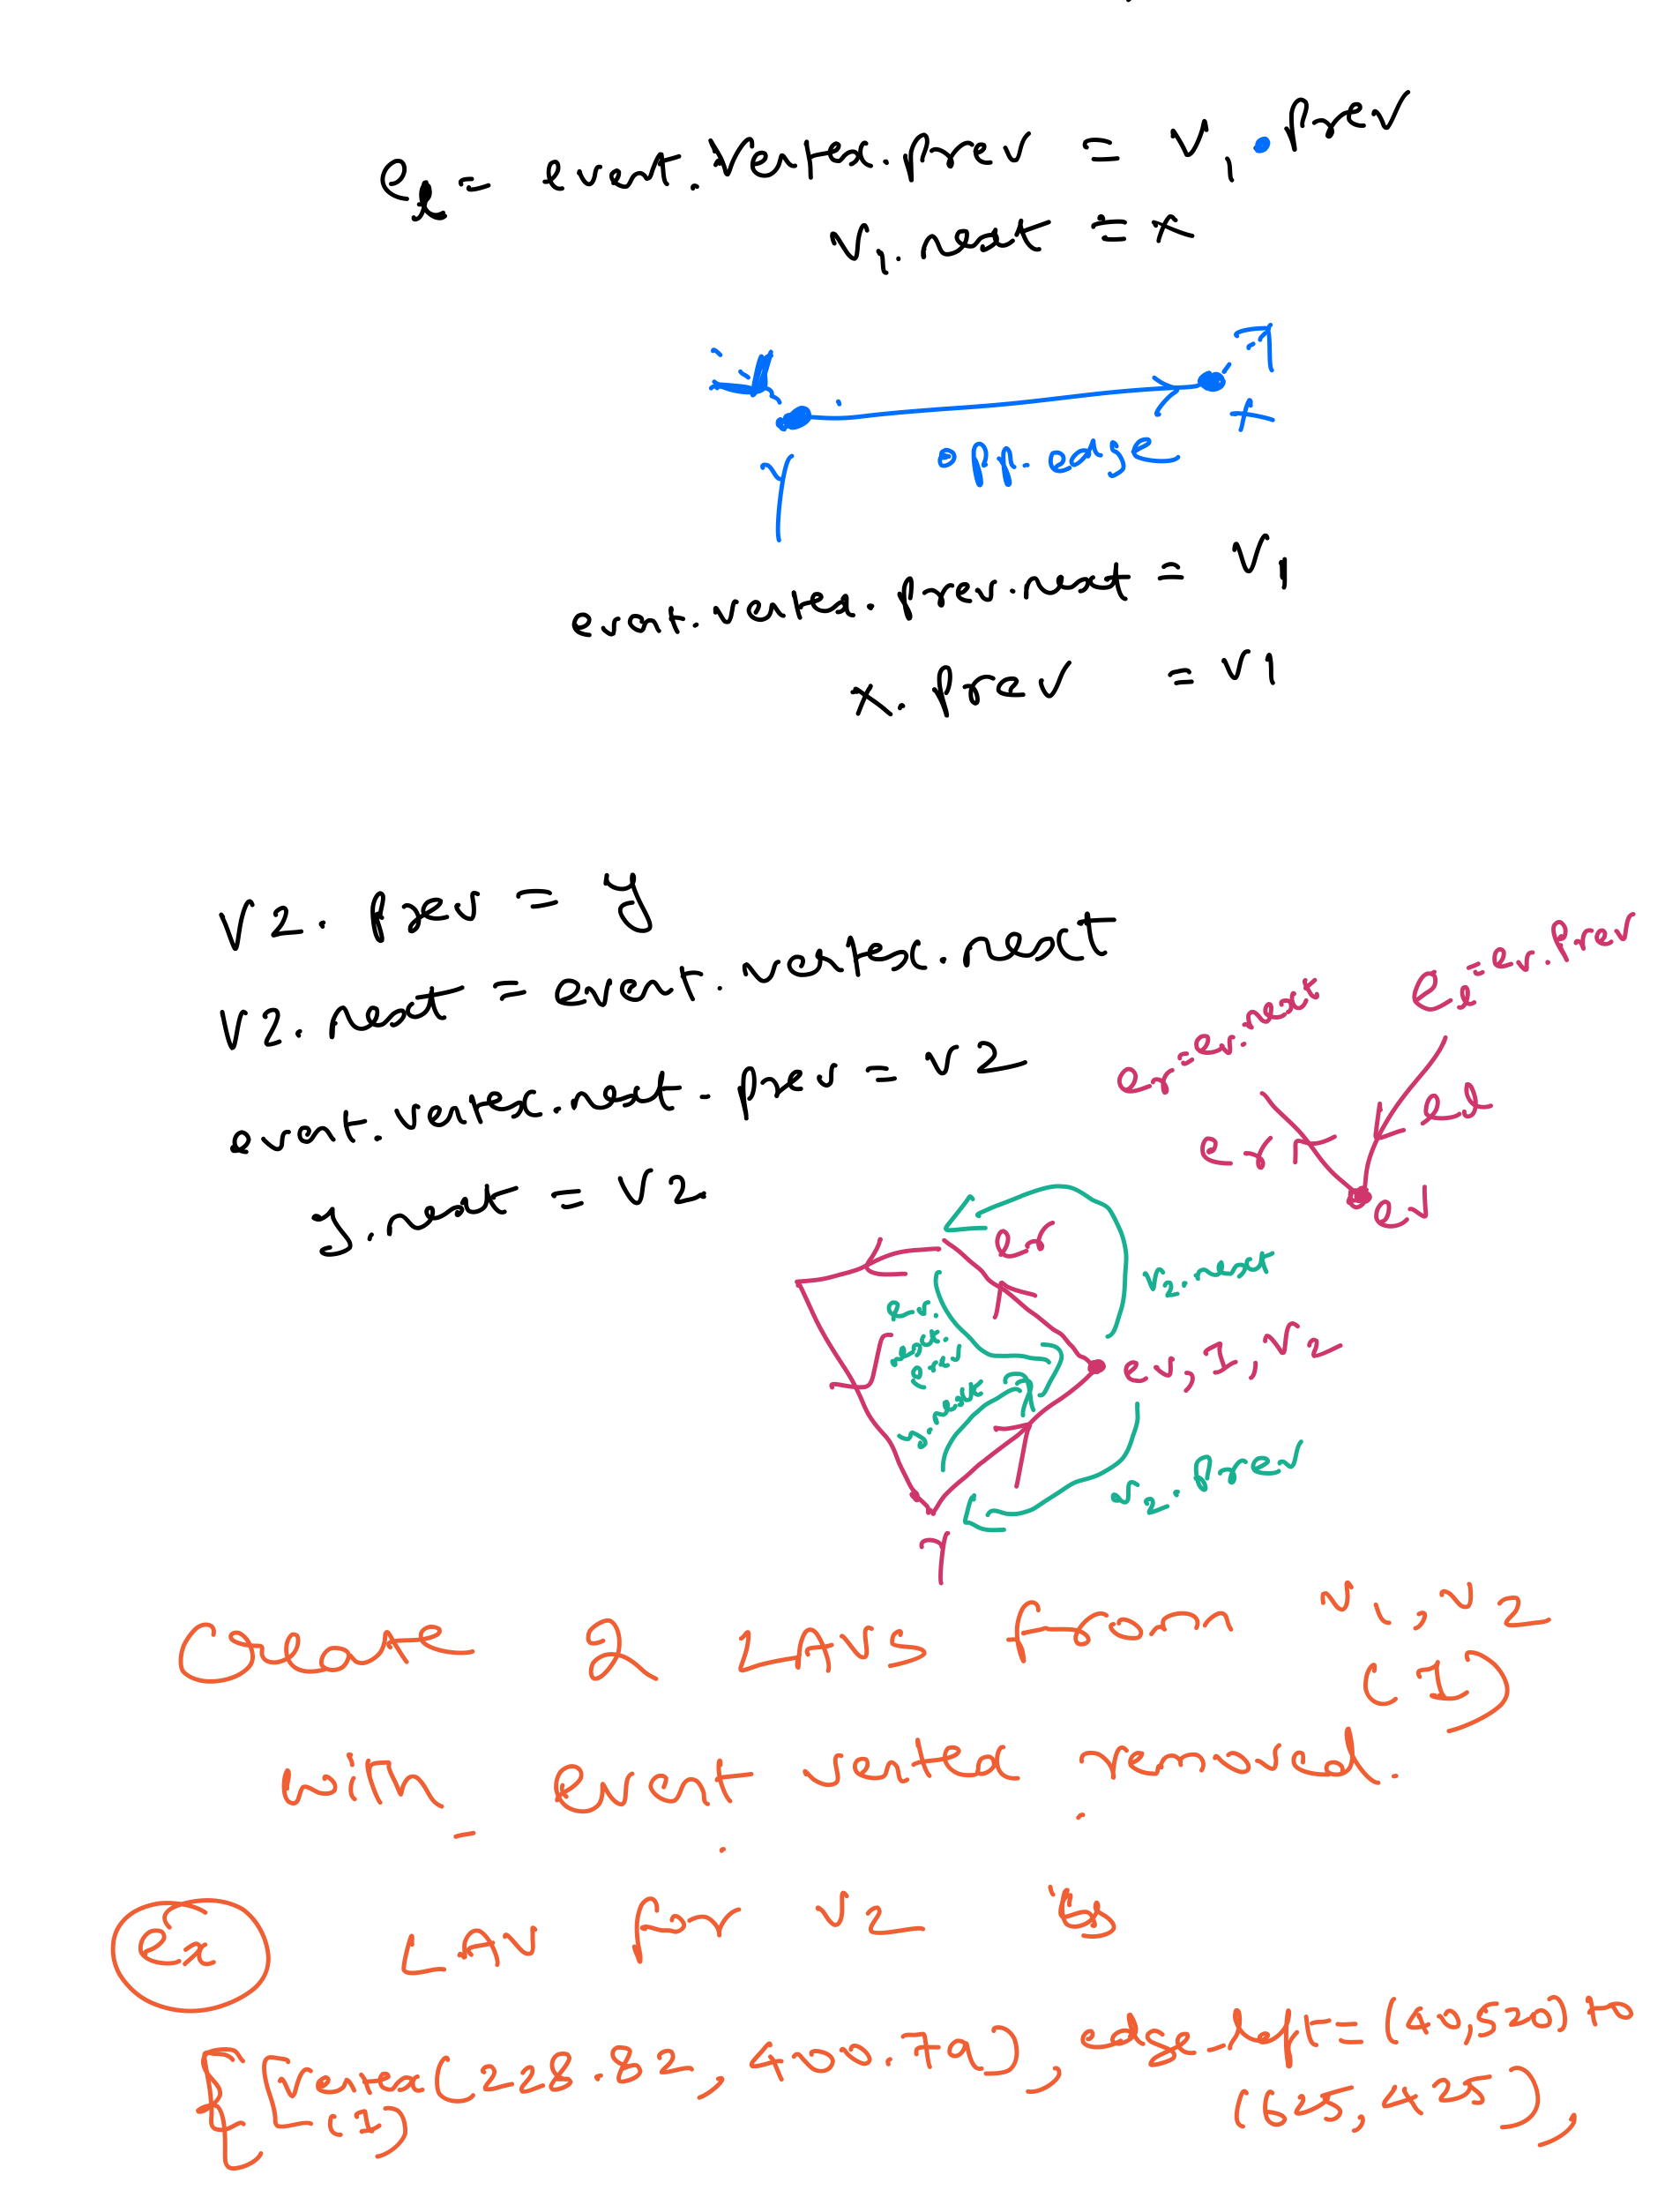 e_l = event.vertex.prev = V1.prev
V1.next = x
opp.edge
x
Y
event.vertex.prev.next = V1
x.prev = V1
V2.prev = y
V2.next = event.vertex.next
event.vertex.next.prev = V2
y.next = V2
e_l = ev.prev
er = ev.next
er
el
ev
er
v2.next
ev.
y.next
ev, I, V2
v2.prev
Y
Create 2 LAVs from V1, V2
(I)
with event vertex removed.
Ex
LAV for V2 is
[[Vertex(228.82, 400.70), edge_left=(40,520) to
(I)
(625,425),